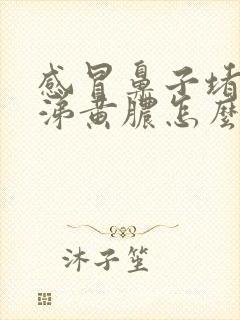 感冒鼻子堵
涕黄脓怎麽
沐子笙